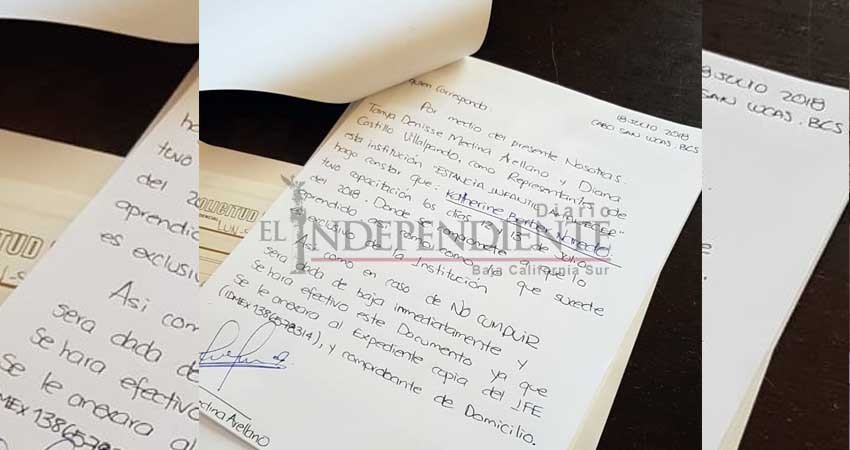 18 JULIO 2018
CABO SAN LUCAS, BCS
quien Corresponda:
Por medio del presente Nosotras
Tanya Denisse Medina Arellano y Diana
Castillo Villalpando, como Representantes de
esta institución "ESTANCIA INFANTIL
hago constar que: Katherine
tuvo capacitación los días y 13 de Julio
del 2018. Donde se compromete a que lo
aprendido así como lo que sucede
es exclusivo de la Institución
Así como en caso de NO CUMPLIR
sera dada de baja inmediatamente y
Se hara efectivo este Documento ya que
Se le anexara al Expediente copia del IFE
(IDMEX1386578314), y comprobante de Domicilio.
edina Arellano
Diario
EL INDEPENDIENTE
Baja California Sur
SOLICITUD
LUN-S
tuvo
del 20
aprendido
es exclusiv
Así com
sera dada de
Se hara efectivo
Se le anexara al
MEX 13865783
ctina Arellano
8 JULIO 2018
SAN LUCAS, BCS